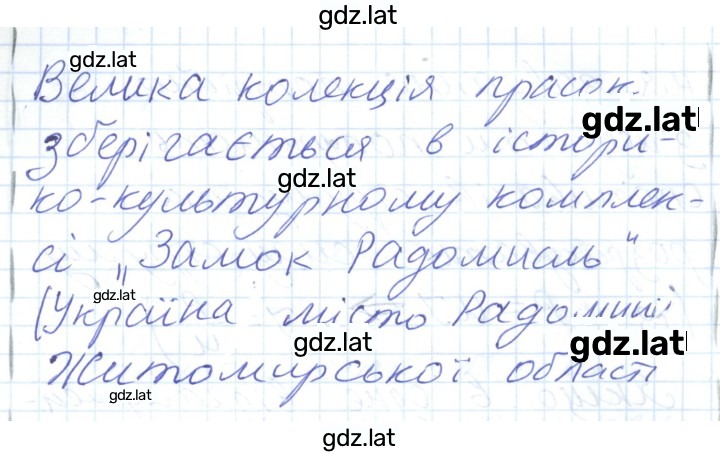 gdz.lat
gdz.lat
Велика колекція прасок
gdz.lat
зберігається в істори-
gdz.lat
ко-культурному комплек-
сі „Замок Радомисль"
gdz.lat
(Україна місто Радомишлі
gdz.lat
gdz.lat
Житомирської області
gdz.lat
gdz.lat